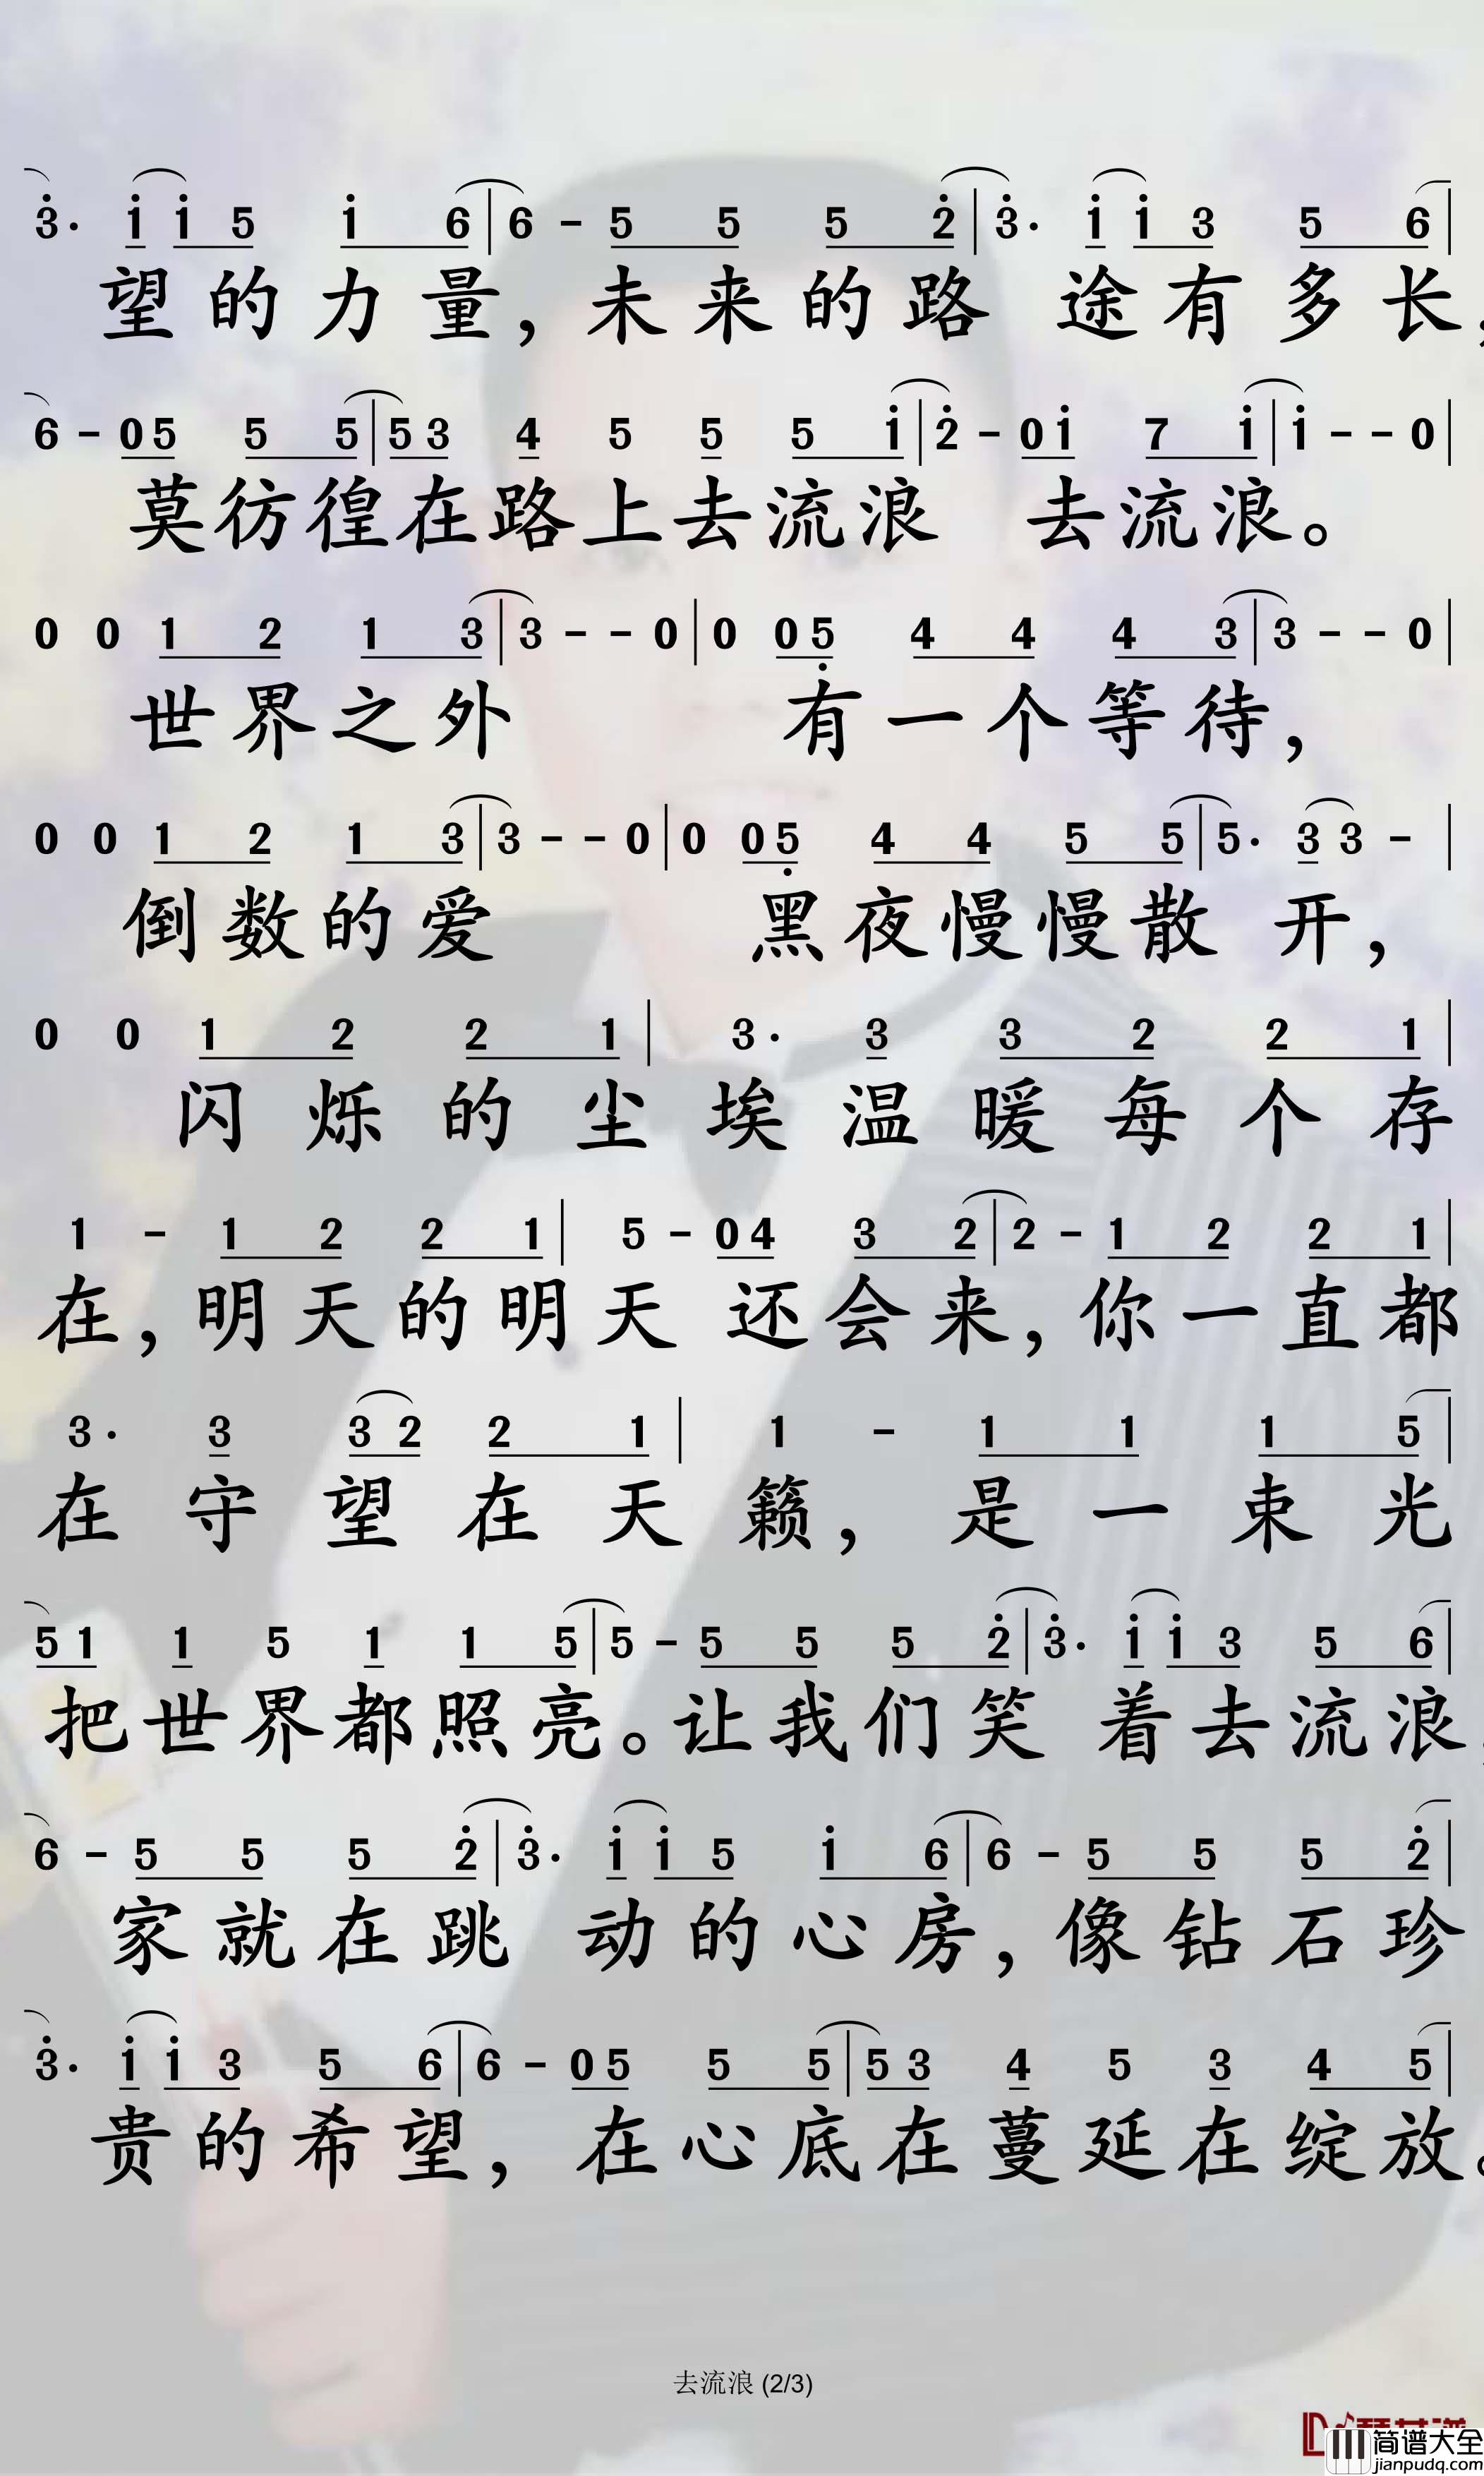 3· i i 5 i 6 | 6 - 5 5 5 2 | 3· i i 3 5 6 |
望的力量，未来的路 途有多长，
6 - 0 5 5 5 | 5 3 4 5 5 5 i | 2 - 0 i 7 i | i - - 0 |
莫彷徨在路上去流浪 去流浪。
0 0 1 2 1 3 | 3 - - 0 | 0 0 5 4 4 4 3 | 3 - - 0 |
世界之外 有一个等待，
0 0 1 2 1 3 | 3 - - 0 | 0 0 5 4 4 5 5 | 5· 3 3 - |
倒数的爱 黑夜慢慢散 开，
0 0 1 2 2 1 | 3· 3 3 2 2 1 |
闪烁的尘埃温暖每个存
1 - 1 2 2 1 | 5 - 0 4 3 2 | 2 - 1 2 2 1 |
在，明天的明天 还会来，你一直都
3· 3 3 2 2 1 | 1 - 1 1 1 5 |
在守望在天籁，是一束光
5 1 1 5 1 1 5 | 5 - 5 5 5 2 | 3· i i 3 5 6 |
把世界都照亮。让我们笑 着去流浪，
6 - 5 5 5 2 | 3· i i 5 i 6 | 6 - 5 5 5 2 |
家就在跳 动的心房，像钻石珍
3· i i 3 5 6 | 6 - 0 5 5 5 | 5 3 4 5 3 4 5 |
贵的希望，在心底在蔓延在绽放。
去流浪 (2/3)
简谱大全
jianpudq.com